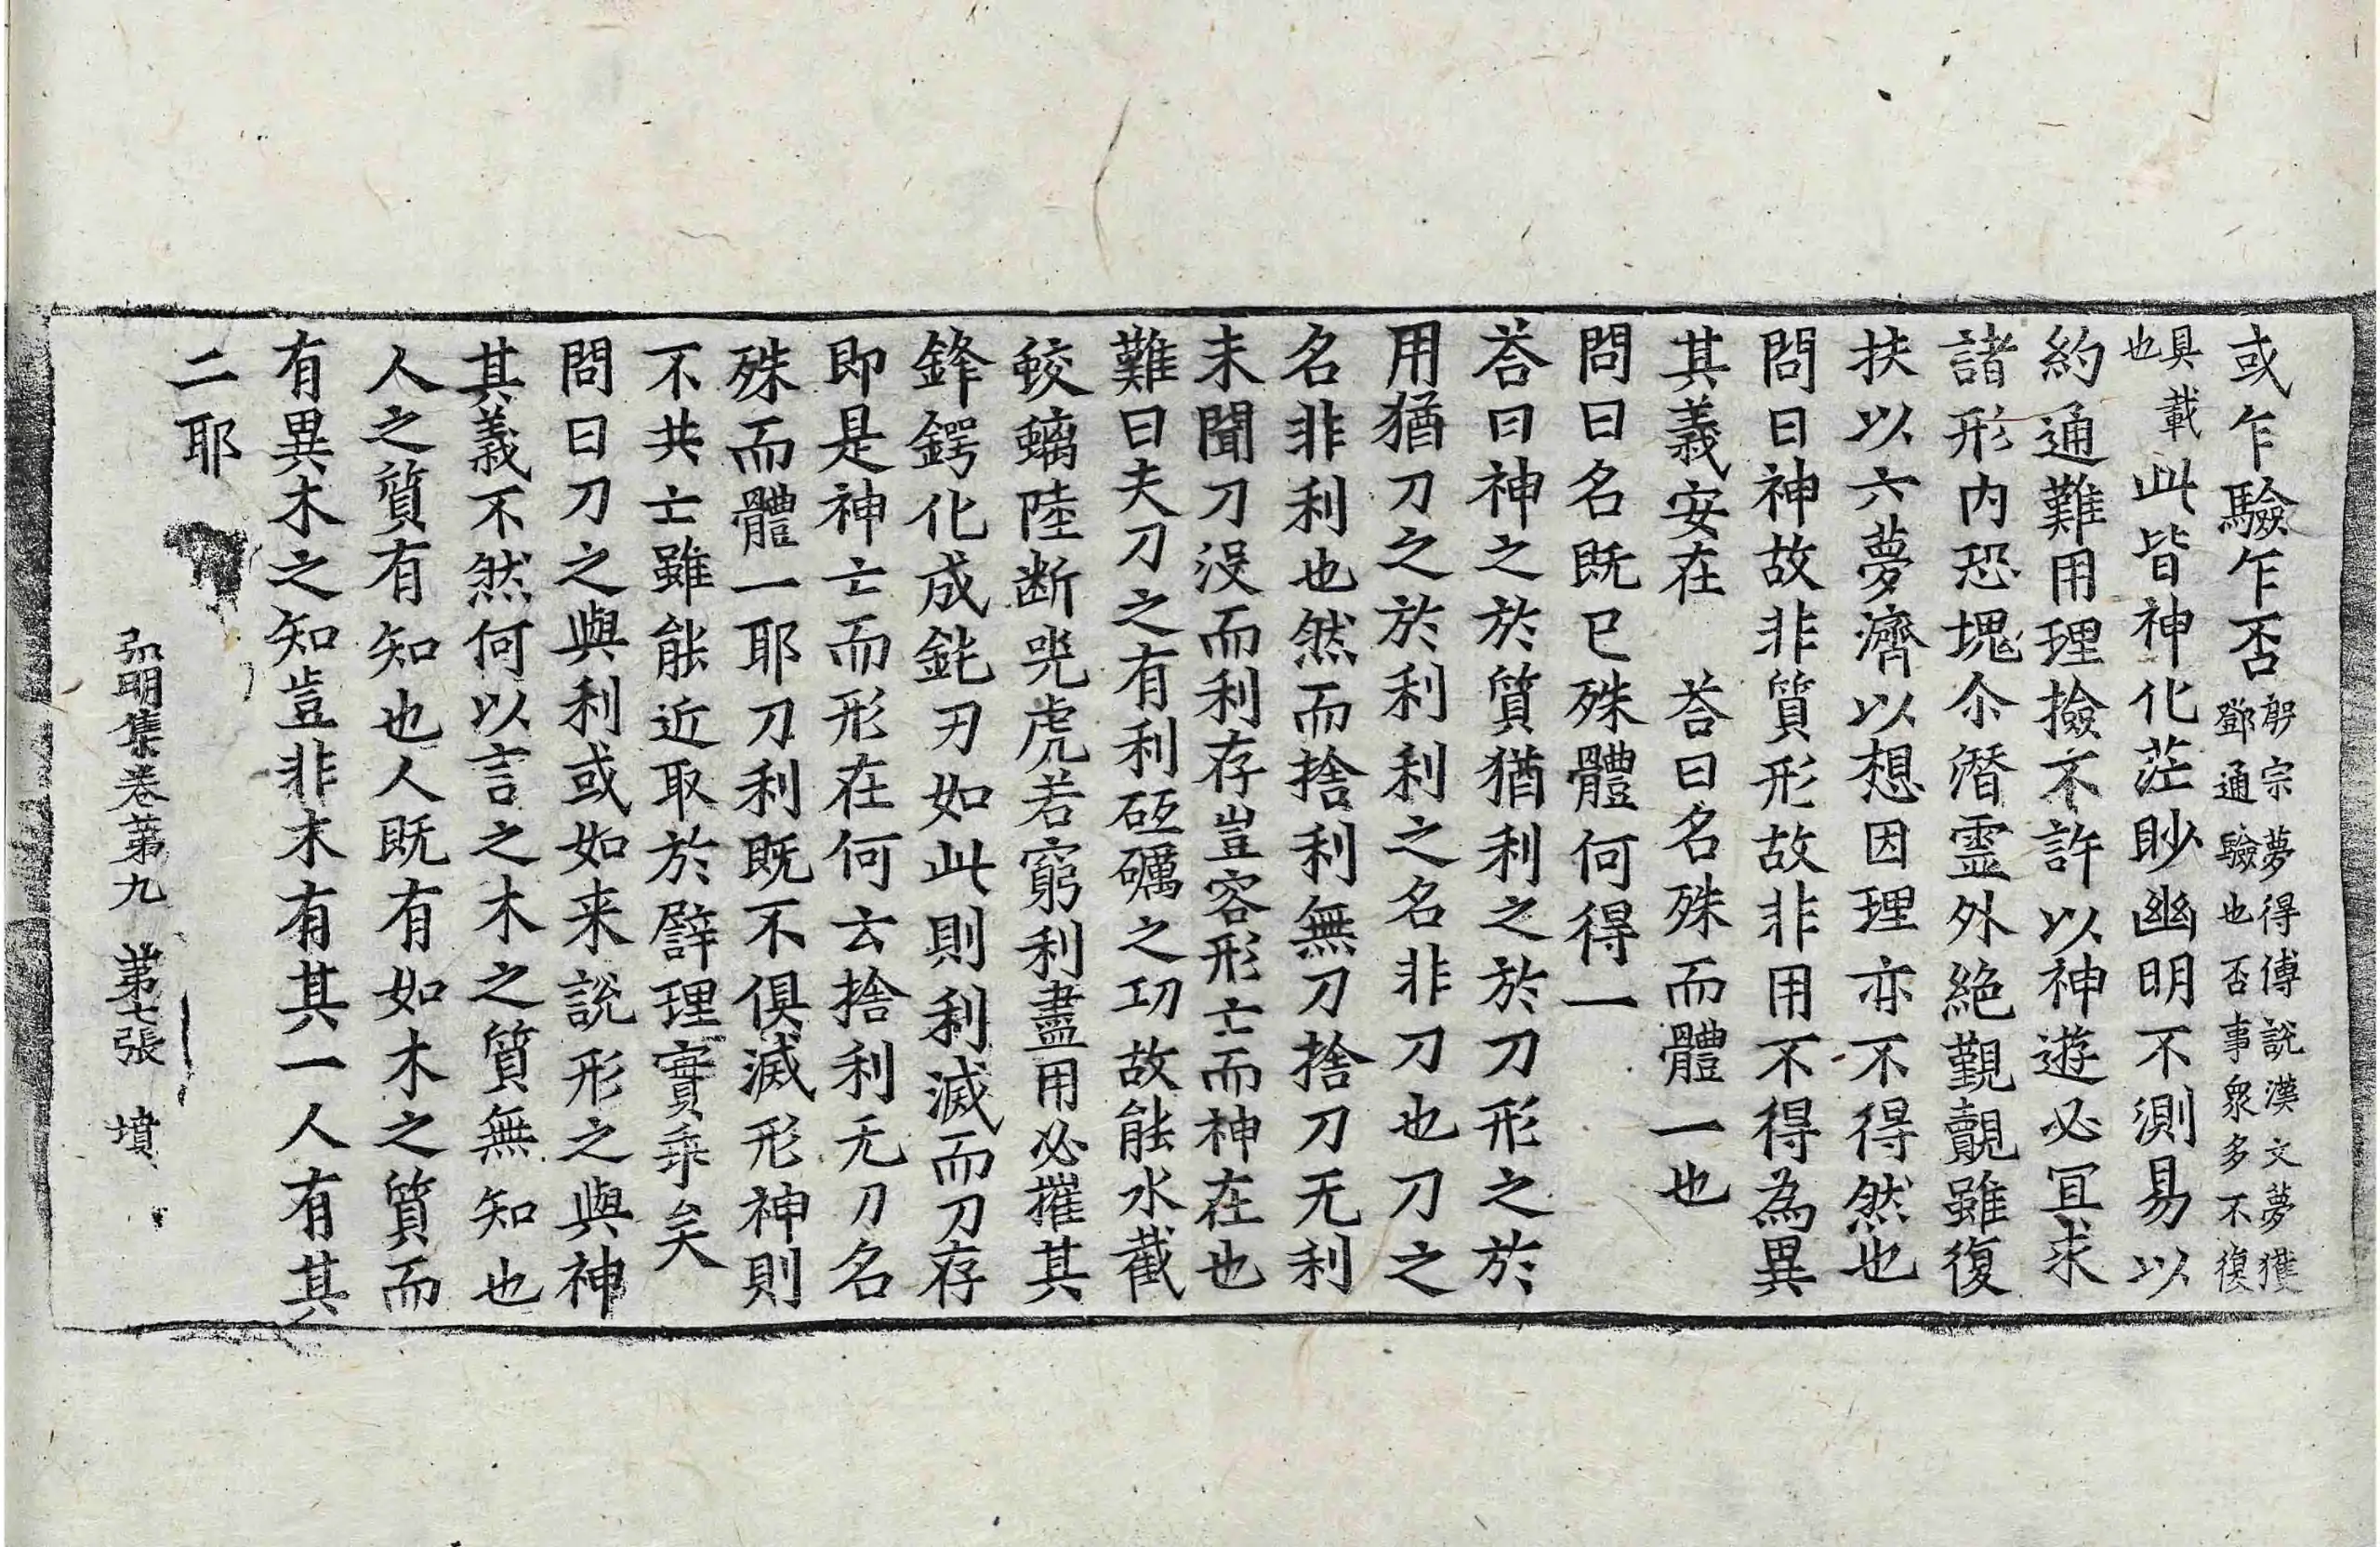 或乍驗乍否殷宗夢得傅說漢文夢獲鄧通驗也否事衆多不復
具載也此皆神化茫眇幽明不測易以
約通難用理撿不許以神遊必冝求
諸形內恐塊尒潛靈外絶覲覿雖復
扶以六夢濟以想因理亦不得然也
問曰神故非質形故非用不得為異
其義安在　荅曰名殊而體一也
問曰名既已殊體何得一
荅曰神之於質猶利之於刀形之於
用猶刀之於利利之名非刀也刀之
名非利也然而捨利無刀捨刀无利
未聞刀沒而利存豈容形亡而神在也
難曰夫刀之有利砥礪之功故能水截
蛟螭陸断兕虎若窮利盡用必摧其
鋒鍔化成鈍刃如此則利滅而刀存
即是神亡而形在何云捨利无刀名
殊而體一耶刀利既不俱滅形神則
不共亡雖能近取於譬理實乖矣
問曰刀之與利或如来說形之與神
其義不然何以言之木之質無知也
人之質有知也人既有如木之質而
有異木之知豈非木有其一人有其
二耶
弘明集卷第九　第七張　墳